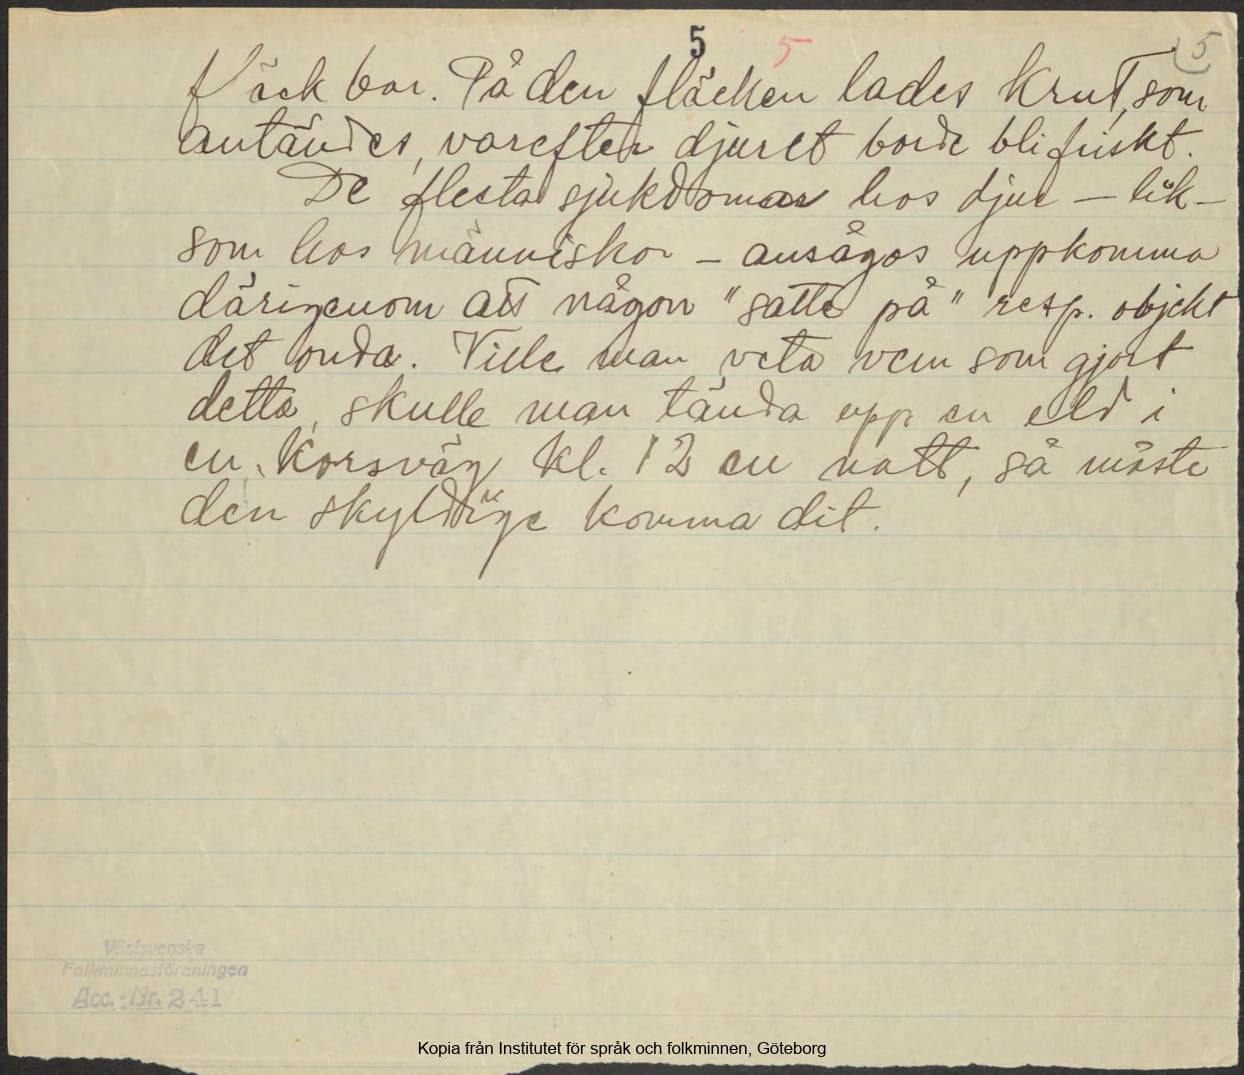 5 5 5
fläck bar. På den fläcken lades krut, som
antändes, varefter djuret borde bli friskt.
De flesta sjukdomar hos djur – lik-
som hos människor – ansågos uppkomma
därigenom att någon "satte på" resp. objekt
det onda. Ville man veta vem som gjort
detta, skulle man tända upp en eld i
en korsväg kl. 12 en natt, så måste
den skyldige komma dit.
Västsvenska
Folkminnesföreningen
Acc.-Nr. 241
Kopia från Institutet för språk och folkminnen, Göteborg